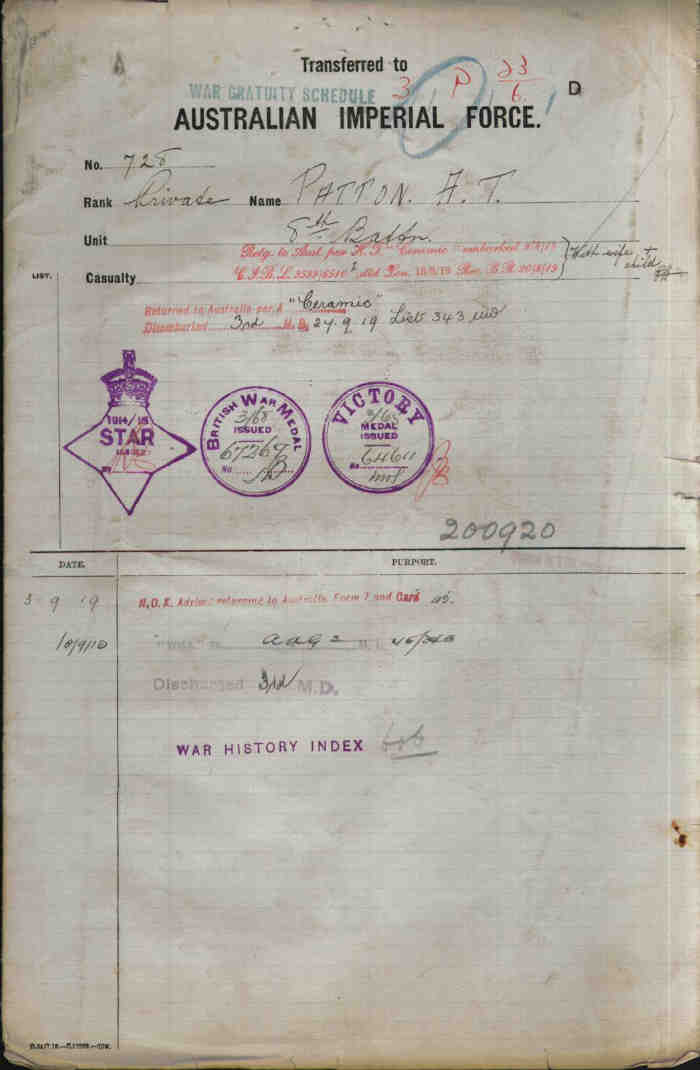 Transferred to
WAR GRATUITY SCHEDULE 3 P 23/6 D
AUSTRALIAN IMPERIAL FORCE.
No. 728
Rank Private Name PATTON. A. T.
Unit 8th Battn.
Retg. to Aust. per H.T. "Ceramic" embarked
With wife + child
LIST.
Casualty
Returned to Australia per "Ceramic"
Disembarked 3rd M.D. 27.9.19 List 343
1914/15
STAR
ISSUED
BRITISH WAR MEDAL
3/68
ISSUED
67267
No.
VICTORY
MEDAL
ISSUED
No. 64611
200920
DATE. PURPORT.
3 9 19 N.O.K. Advised returning to Australia Form 1 and Card
Discharged 3rd M.D.
WAR HISTORY INDEX